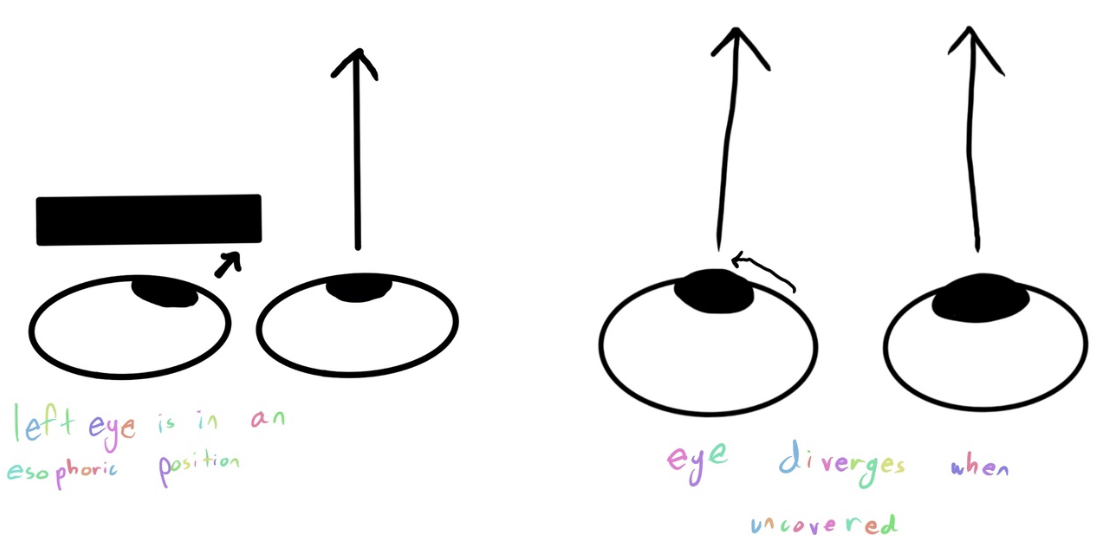 left eye is in an
esophoric position
eye diverges when
uncovered